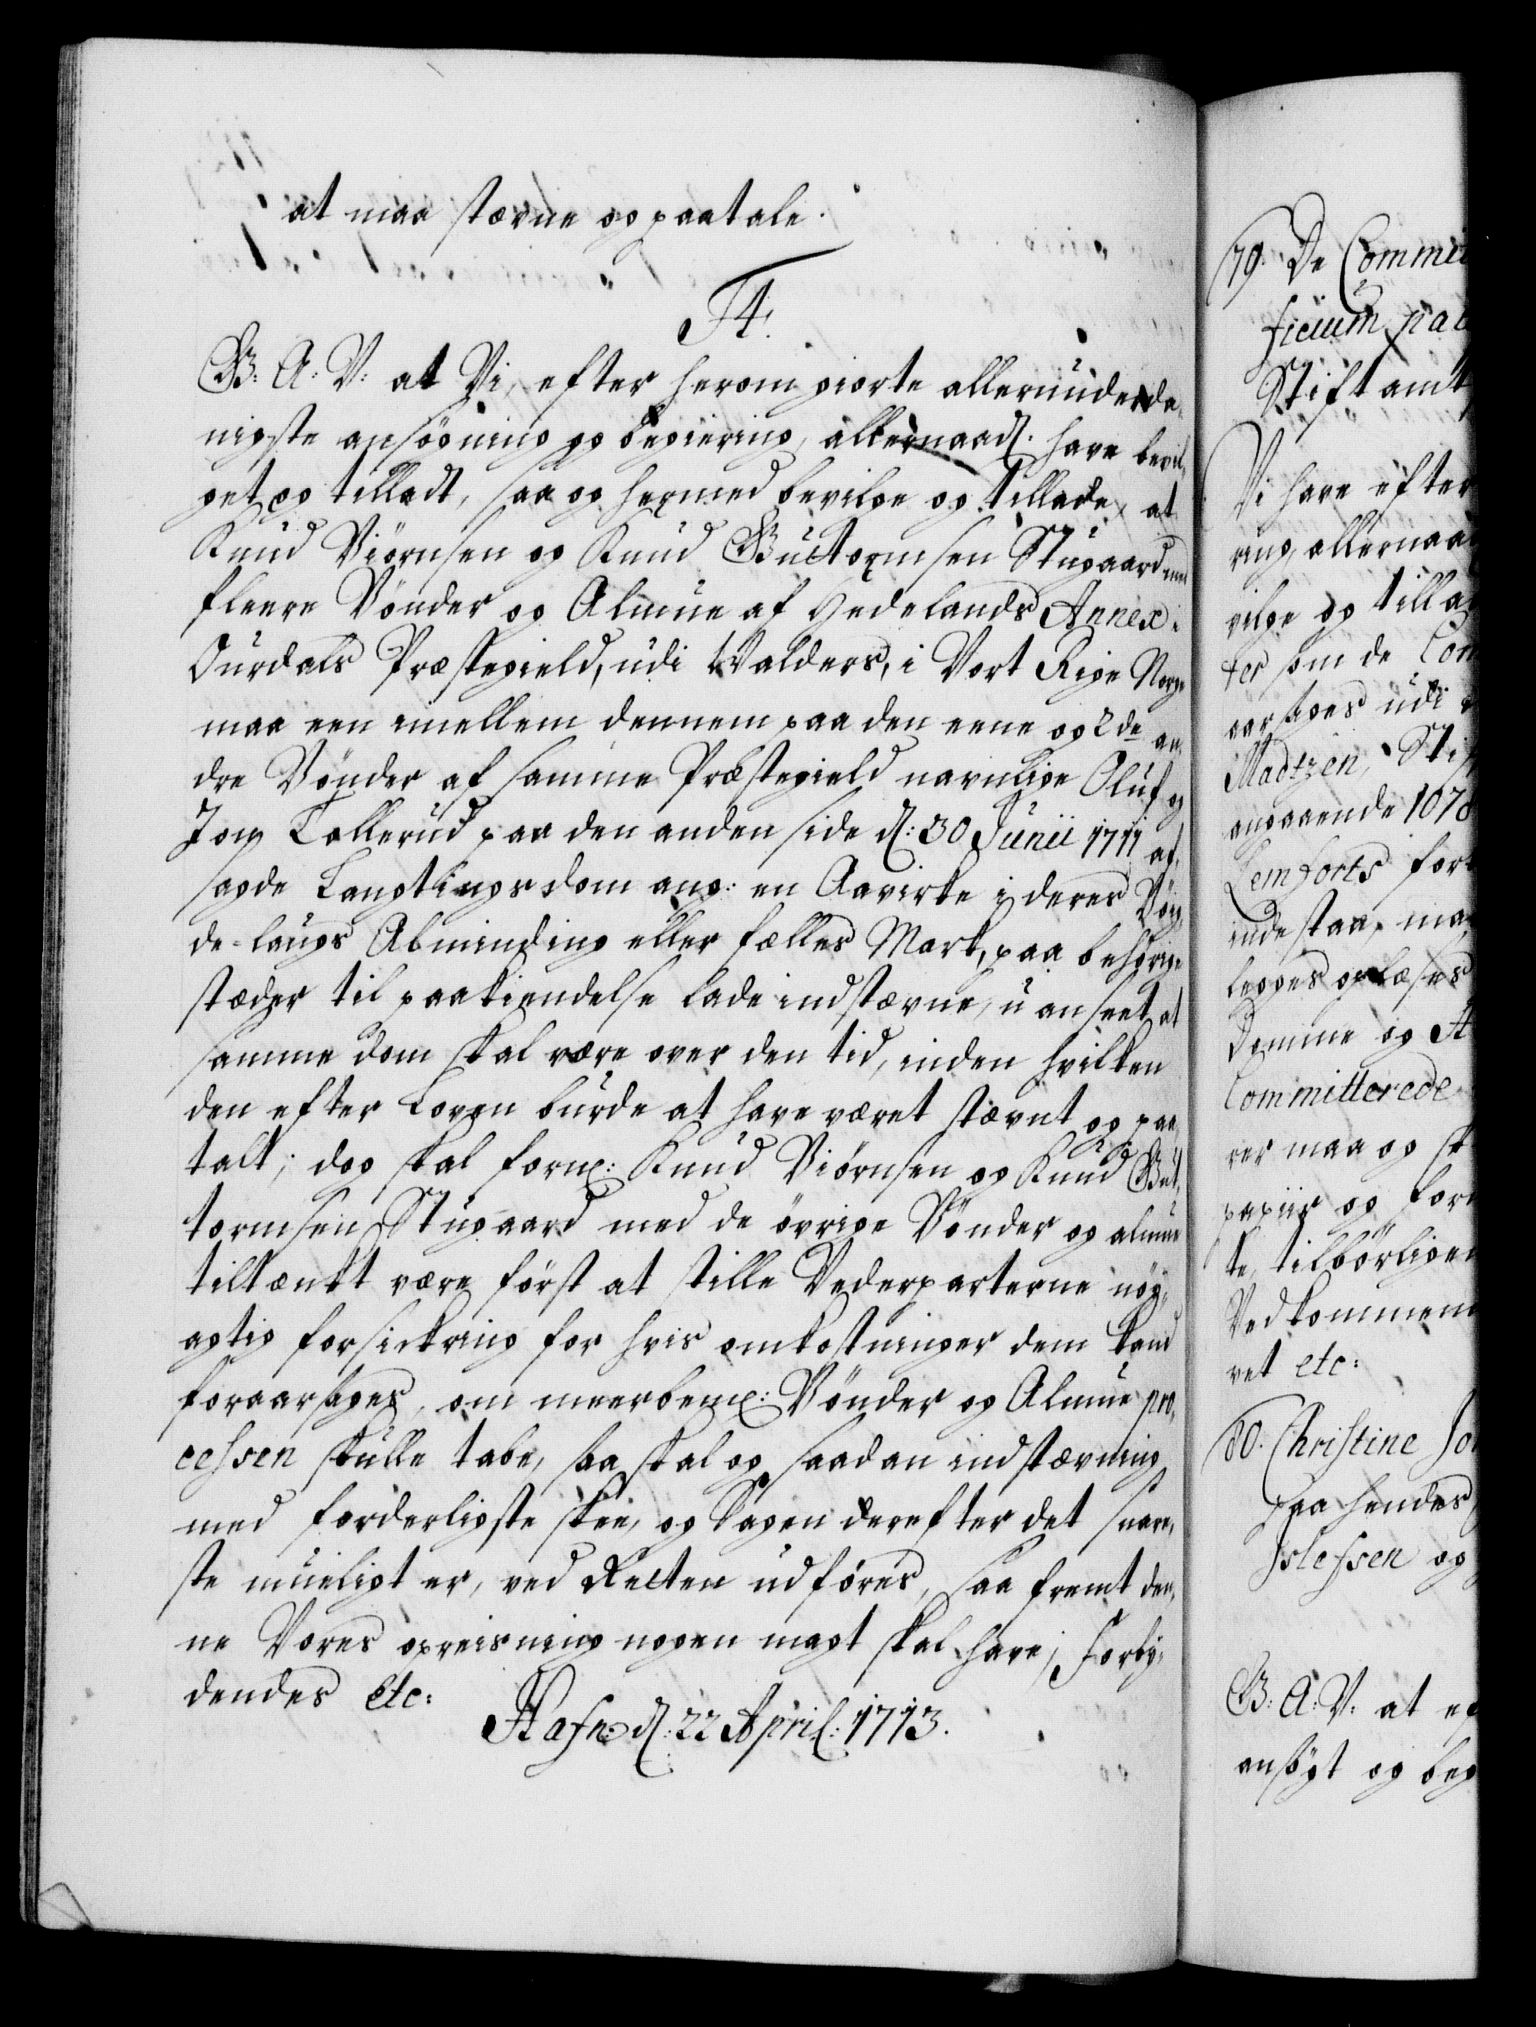 at maa stævne og paatale.
F4.
G: A: V: at Vi, efter herom giorte allerunderda,
nigste ansögning og begiering, allernaadst. have bevil,
get og tilladt, saa og hermed bevilge og tillade, at
Knud Biörnsen og Knud Guttormsen Stugaard med
fleere Bönder og Almue af Hedelands Annex i
Ourdals Præstegield, udi Walders, i Vort Rige Norge
maa een imellem dennem paa den eene og 2de an,
dre Bönder af samme Præstegield navnlige Oluf og
Jon Tollerud paa den anden side d: 30 Junii 1711 af,
sagde Laugtings dom ang: en Aavirke i deres Böig,
de-laugs Alminding eller fælles Mark, paa behörige
stæder til paakiendelse lade indstævne, u anseet at
samme dom skal være over den tid, inden hvilken
den efter Loven burde at have været stævnt og paa,
talt; dog skal forne: Knud Biörnsen og Knud Gut,
tormsen Stugaard med de övrige Bönder og almue
tiltænkt være först at stille Vederparterne nöy,
agtig forsickring for hvis omkostninger dem kand
foraarsages, om meerbemte: Bönder og Almue pro,
cessen skulle tabe, saa skal og saadan indstævning
med forderligste skee, og Sagen derefter det snare,
ste mueligt er, ved Retten udföres, saa fremt den,
ne Vores opreisning nogen magt skal have; Forby,
dendes etc:
Hafn: d: 22 April: 1713.
79. De Commit
ficium paa
Stiftamt
Vi have efter
ring, allernaad
vilge og tillad
ter som de Com
aarsages udi
Madtzen, Stif
angaaende 1078
Lemforts for
inde staa, ma
legges oplæses
Domme og A
Committerede
rer maa og sk
papiir og for
te, tilbörligen
Vedkommen
vet etc:
80. Christine Jo
paa hendes
Islefsen og
G: A: V: at ef
ansögt og beg